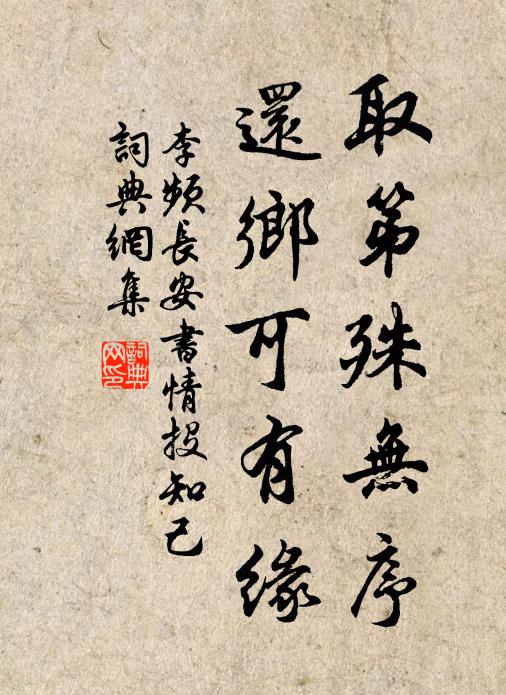 取第殊無序
還鄉可有緣
李頻長安書情投知己
詞典網集
詞典
网印